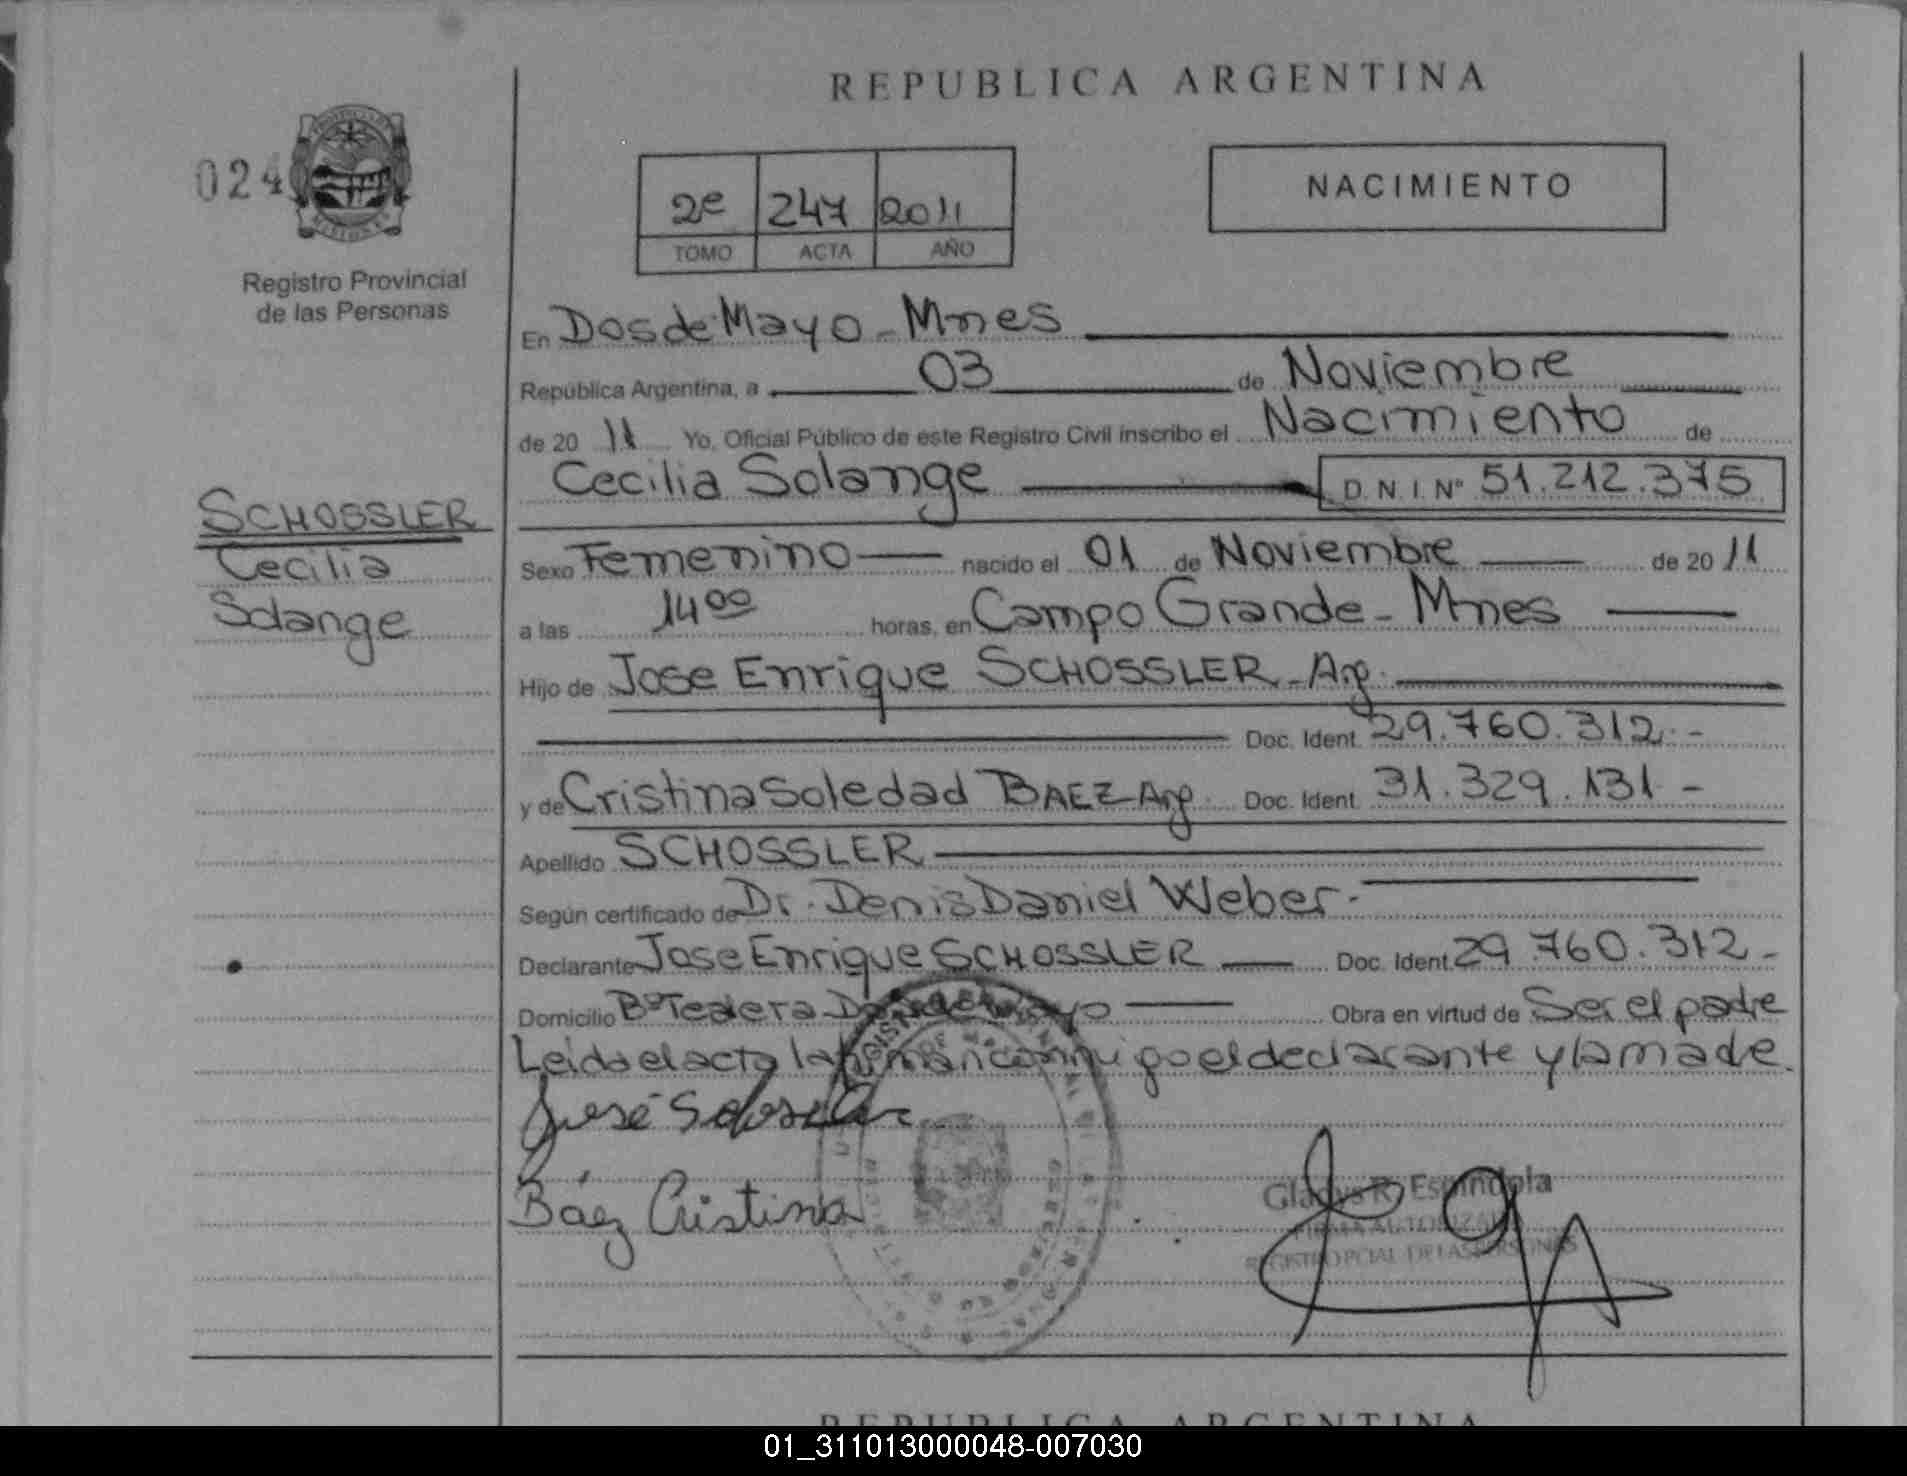 REPUBLICA ARGENTINA
024
Registro Provincial
de las Personas
2º 247 2011
TOMO ACTA AÑO
NACIMIENTO
En Dos de Mayo - Mnes
República Argentina, a 03 de Noviembre
de 20 11 Yo, Oficial Público de este Registro Civil inscribo el Nacimiento de
Cecilia Solange D.N.I. Nº 51.212.375
SCHOSSLER
Cecilia
Solange
Sexo Femenino nacido el 01 de Noviembre de 20 11
a las 14 00 horas, en Campo Grande - Mnes
Hijo de Jose Enrique SCHOSSLER - Arg.
Doc. Ident. 29.760.312.-
y de Cristina Soledad BAEZ Arg. Doc. Ident. 31.329.131.-
Apellido SCHOSSLER
Según certificado de Dr. Denis Daniel Weber.-
Declarante Jose Enrique SCHOSSLER Doc. Ident. 29.760.312.-
Domicilio Bº Tealera Dos de Mayo Obra en virtud de Ser el padre
Leida el acta la firman conmigo el declarante y la madre.
José
Báez Cristina
Gladys R. Espíndola
FIRMA AUTORIZADA
REGISTRO PCIAL. DE LAS PERSONAS
REPUBLICA ARGENTINA
01_311013000048-007030